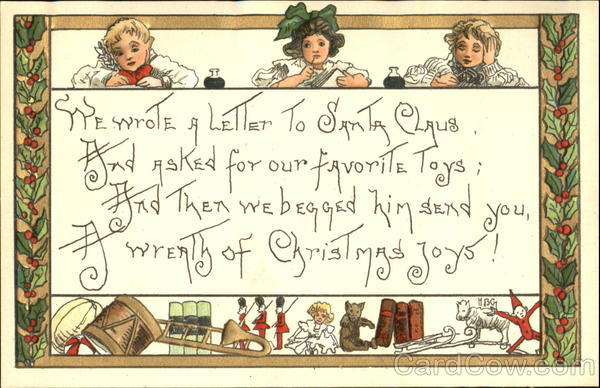 We wrote a letter to Santa Claus,
And asked for our favorite Toys;
And then we begged him send you,
A wreath of Christmas joys!
HBG
CardCow.com